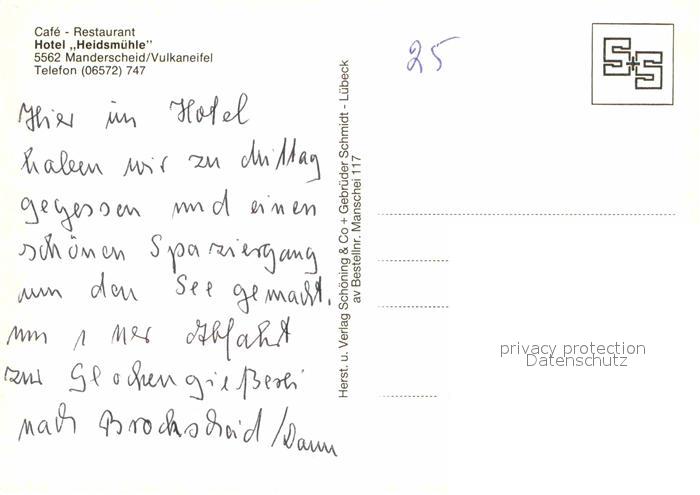 Café - Restaurant
Hotel „Heidsmühle"
5562 Manderscheid/Vulkaneifel
Telefon (06572) 747
25
S+S
Hier im Hotel
haben wir zu Mittag
gegessen und einen
schönen Spaziergang
um den See gemacht.
um 1 Uhr Abfahrt
zur Glockengießerei
nach Brockscheid/Daun
Herst. u. Verlag Schöning & Co + Gebrüder Schmidt - Lübeck
av Bestellnr. Manschei 117
privacy protection
Datenschutz